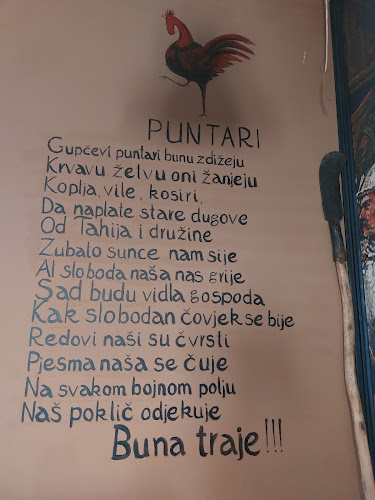 PUNTARI
Gupčevi puntari bunu zdižeju
Krvavu želvu oni žanjeju
Koplja, vile, kosiri,
Da naplate stare dugove
Od Tahija i družine
Zubato sunce nam sije
Al sloboda naša nas grije
Sad budu vidla gospoda
Kak slobodan čovjek se bije
Redovi naši su čvrsti
Pjesma naša se čuje
Na svakom bojnom polju
Naš poklič odjekuje
Buna traje!!!